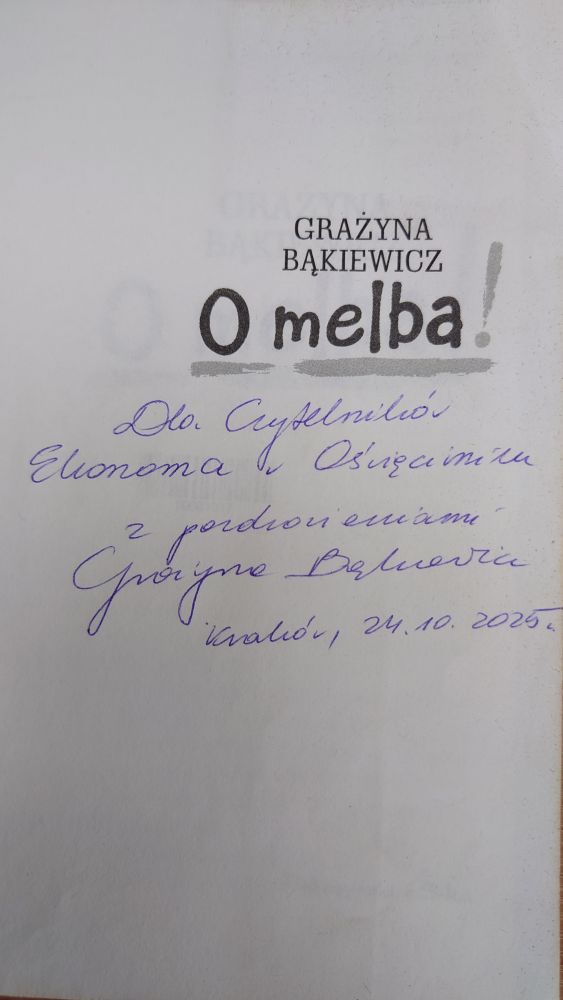 GRAŻYNA
BĄKIEWICZ
O melba!
Dla Czytelników
Ekonoma w Oświęcimiu
z pozdrowieniami
Grażyna Bąkiewicz
Kraków, 24.10.2025r.